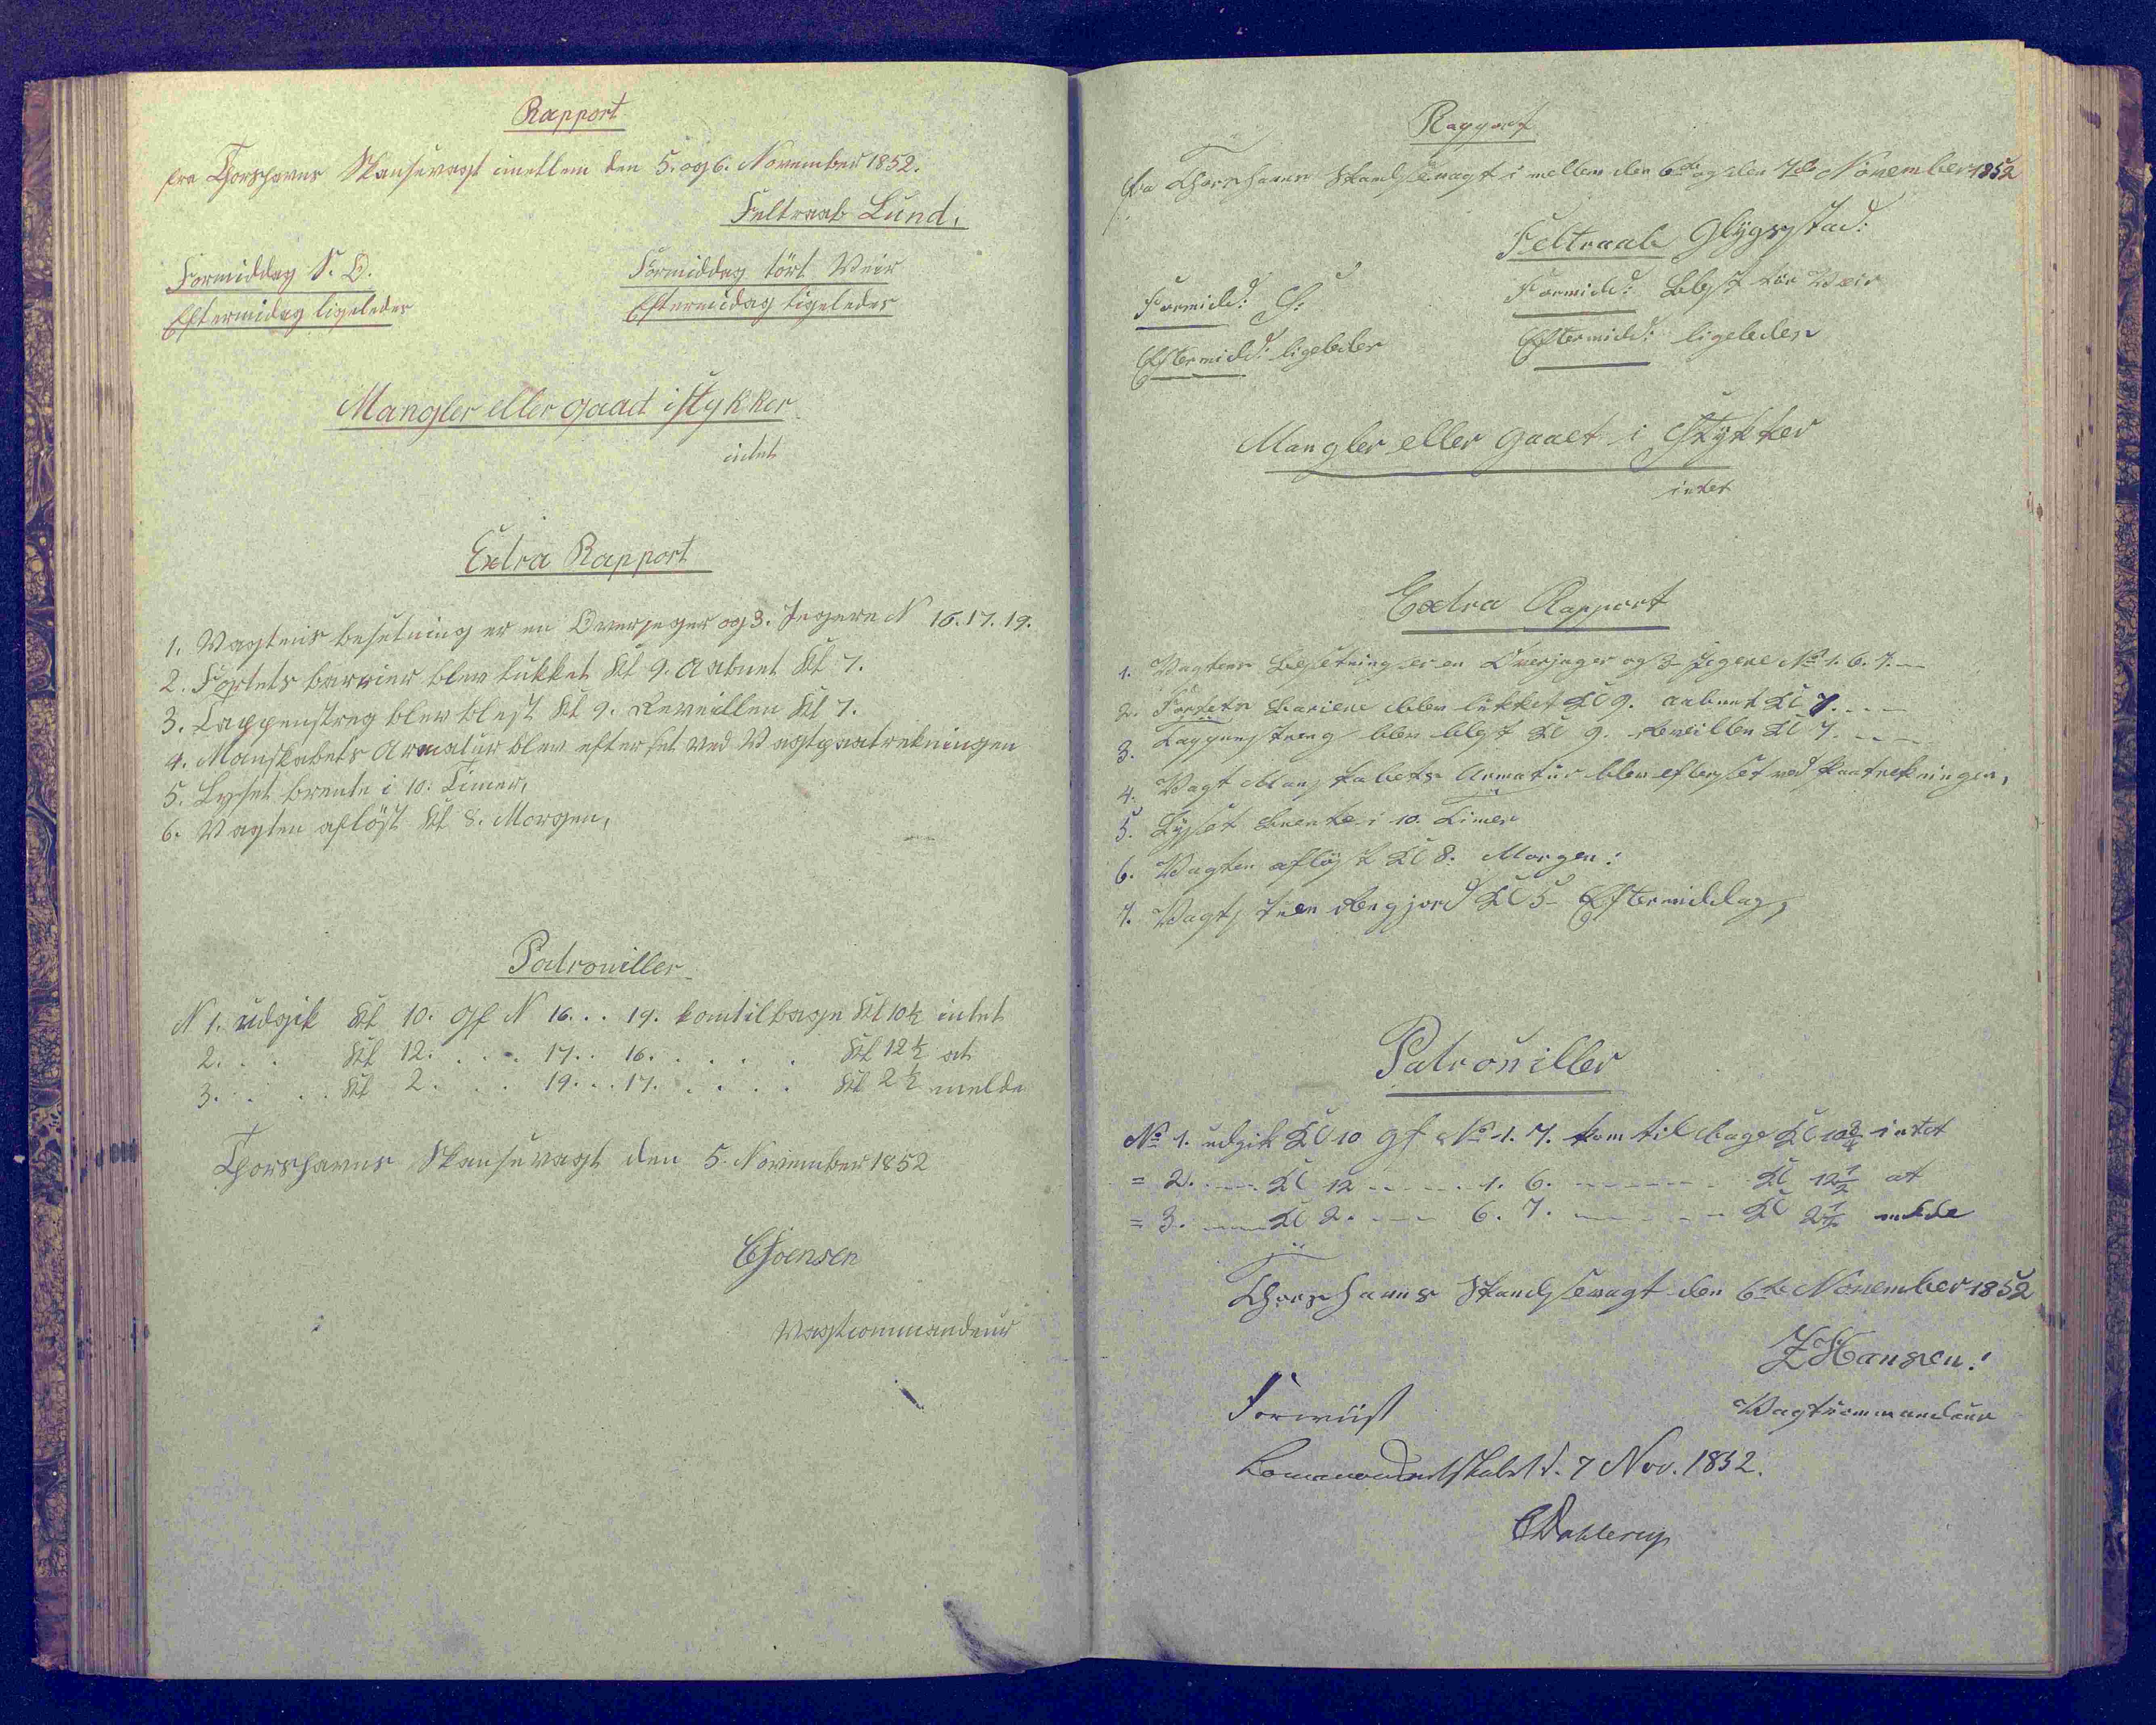 Rapport
fra Thorshavns Skansevagt imellem den 5. og 6. November 1852.
Feltraab Lund.
Formiddag S. O.
Formiddag tört Veir
Eftermidag ligeledes
Eftermidag ligeledes
Mangler eller gaaet istykker
intet
Extra Rapport
1. Vagtens besetning er en Overjeger og 3. Jegere N 16. 17. 19.
2. Fortets barrier blev lukket Kl 9. Aabnet Kl 7.
3. Tappenstreg blev blest Kl 9. Reveillen Kl 7.
4. Manskabets Armatur blev efterset ved Vagtpaatrekningen
5. Lyset brente i 10. Timer,
6. Vagten aflöst Kl 8. Morgen,
Patrouiller
N 1. udgik Kl 10. gf N 16. . . 19. kom tilbage Kl 10½ intet
2. . . Kl 12. . . . . 17. . 16. . . . . . Kl 12½ at
3. . . . . Kl 2. . . . 19. . . 17. . . . . Kl 2½ melde
Thorshavns Skansevagt den 5. November 1852
Joensen
Vagtcommandeur
Rapport
fra Thorshavns Skandsevagt i mellem den 6te og den 7de November 1852
Feltraab
Formidd: S:
Formidd: Blest Veir
Eftermidd: ligeledes
Eftermidd: ligeledes
Mangler eller gaaet i Stykker
intet
Extra Rapport
1. Vagtens Besetning er en Overjæger og 3 Jegere No 1. 6. 7. —
2. Fortets Bariere blev lukket Kl 9. aabnet Kl 7. - - -
3. Tappenstreng blev blest Kl 9. Reveillen Kl 7. - - -
4. Vagt Manskabets Armatur blev efterset ved Paatrekningen,
5. Lyset brente i 10. Timer
6. Vagten aflöst Kl 8. Morgen:
7. Vagtstuen Rengjord Kl 5 Eftermiddag,
Patrouiller
No 1. udgik Kl 10 gf No 1. 7. kom tilbage Kl intet
= 2. - - - Kl 12 - - - - 1. 6. - - - - - - Kl 12½ at
= 3. - - - Kl 2. - - - 6. 7. - - - - - Kl 2½ melde
Thorshavns Skandsevagt den 6te November 1852
Z Hansen.
Vagtcommandeur
Forevist
Commandantskabet d. 7 Nov. 1852.
Dahlerup